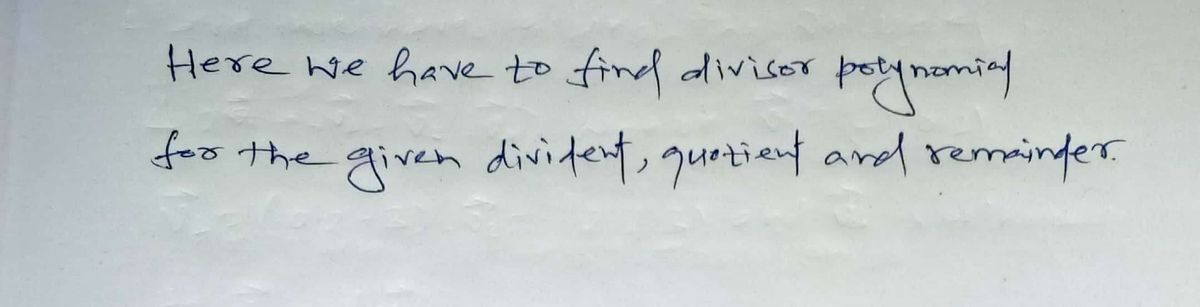 Here we have to find divisor polynomial
for the given divident, quotient and remainder.